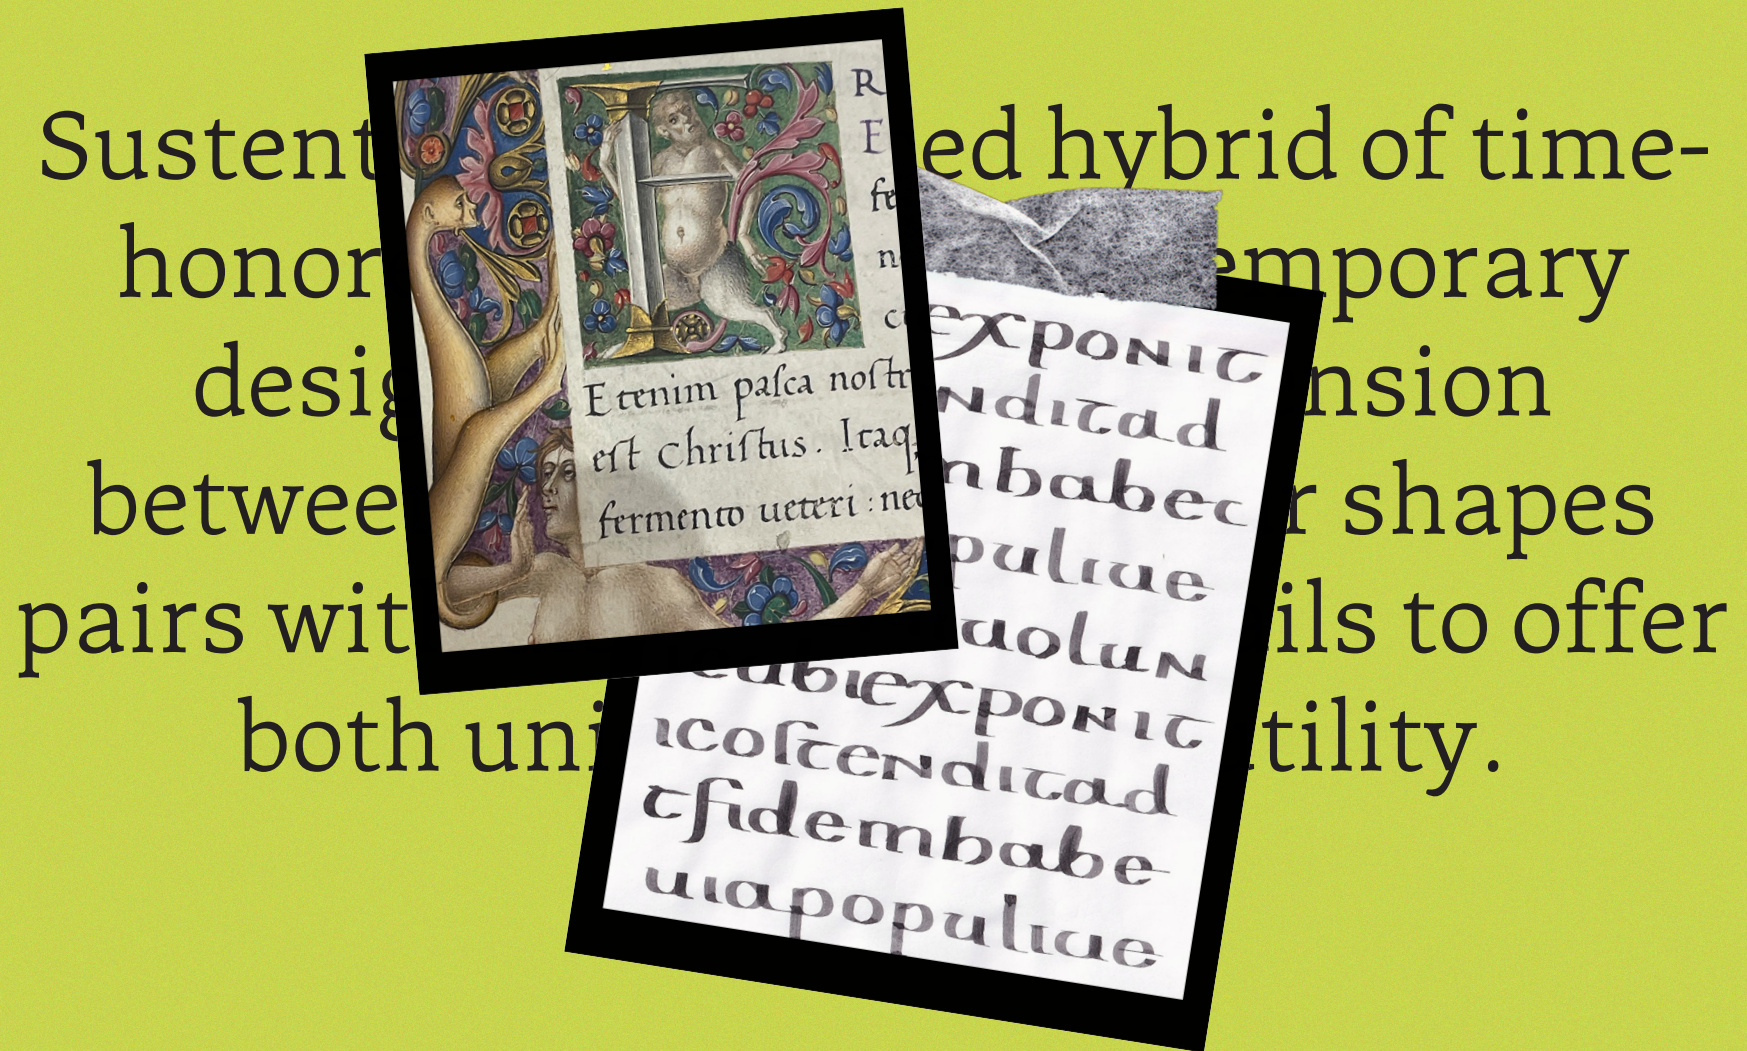 Sustent ed hybrid of time-
honor emporary
desig nsion
betwee r shapes
pairs wit ils to offer
both uni tility.
R
E
fe
n
Etenim paſca noſtr
eſt Chriſtus. Itaq
fermento ueteri : nec
exponit
nditad
mbabec
puliue
uolun
ubiexponit
icoſtenditad
tfidembabe
uiapopuliue